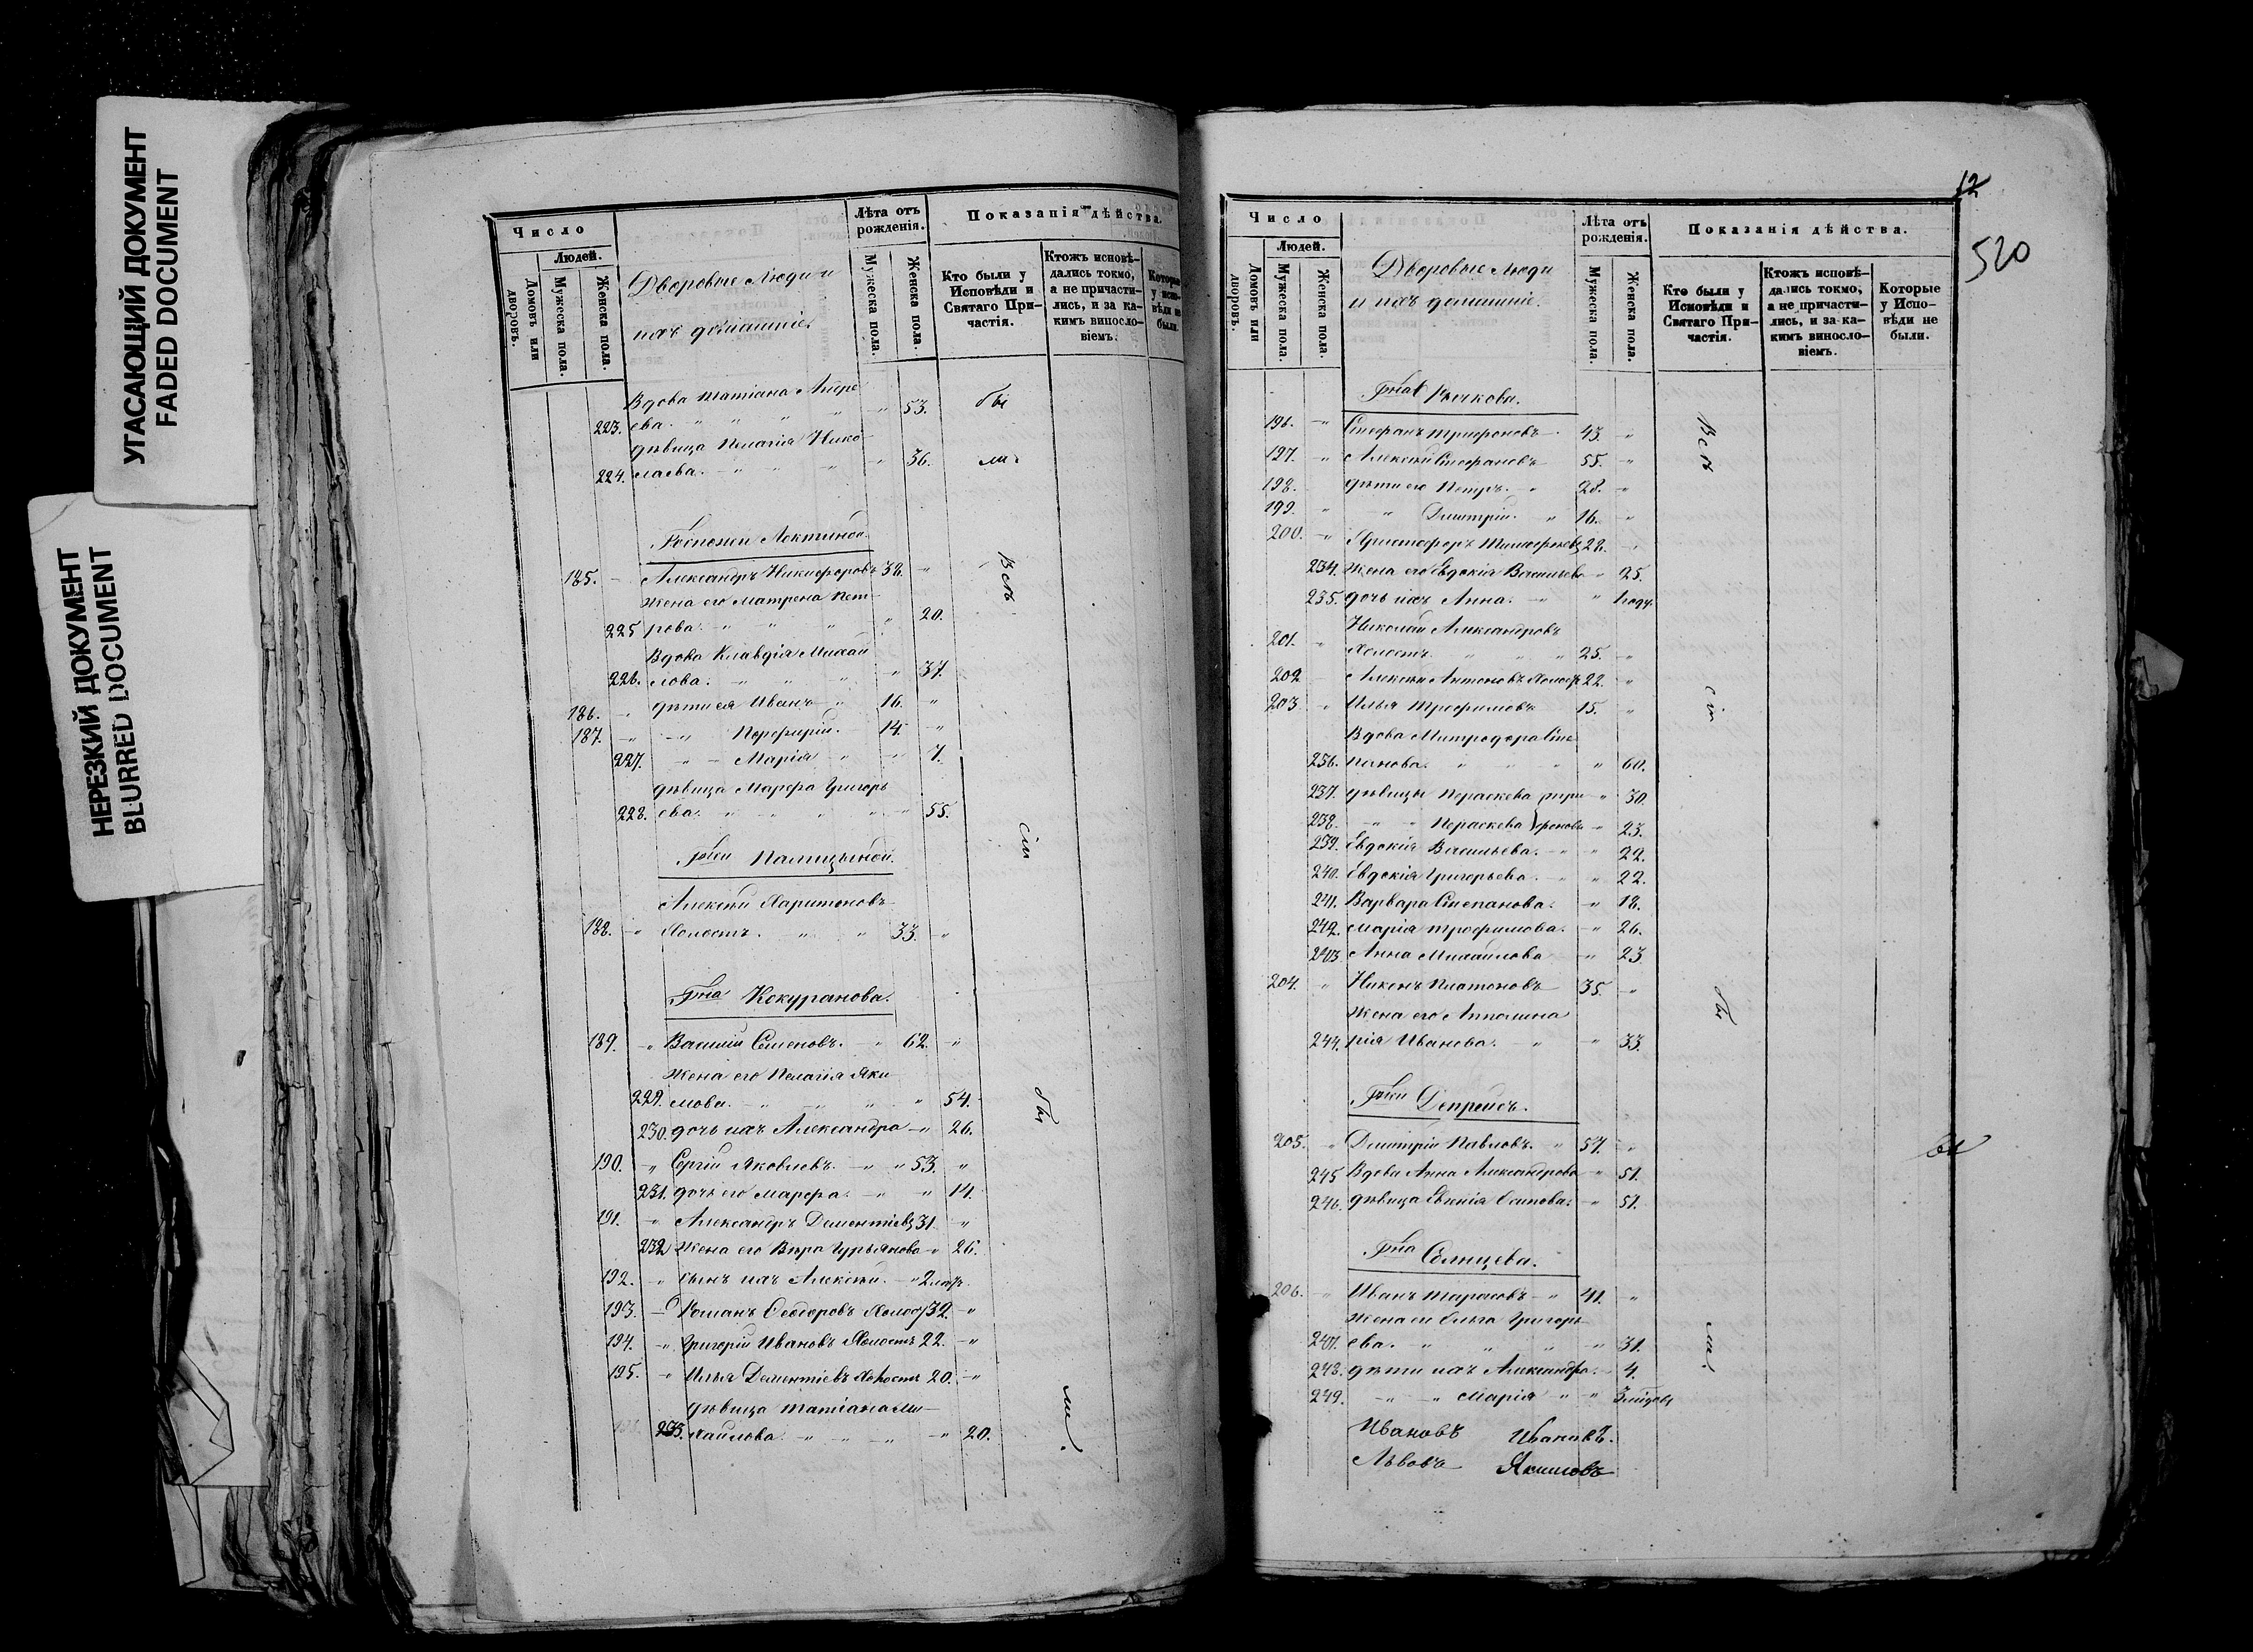 УГАСАЮЩИЙ ДОКУМЕНТ
FADED DOCUMENT
НЕРЕЗКИЙ ДОКУМЕНТ
BLURRED DOCUMENT
Число
Людей.
Домовъ или дворовъ.
Мужеска пола.
Женска пола.
Дворовые люди и
ихъ домашніе.
Лѣта отъ рожденія.
Мужеска пола.
Женска пола.
Показанія дѣйства.
Кто были у Исповѣди и Святаго Причастія.
Ктожъ исповѣдались токмо, а не причастились, и за какимъ винословіемъ.
Которые у исповѣди не были.
Вдова Татіана Андре
223. ева. " " " " 53. бы
дѣвица Пелагія Нико
224. лаева. " " " " 36. ли.
Госпожи Локтиной.
185. Александръ Никифоровъ 38. " Всѣ
жена его Матрена Пет
225 рова. " " " " 20.
Вдова Клавдія Михай
226. лова. " " " " 37.
186. " дѣти ея Иванъ " 16. "
187. " " Порфирій. 14. "
227. " " Марія " " 7.
дѣвица Марфа Григорь
228. ева. " " " " " 55.
сіи
Гжи Палицыной.
Алексѣй Харитоновъ
188. " холостъ. " " 33. "
Гна Кокуранова.
189. " Василій Семеновъ. " 62. "
жена его Пелагія Яки
229. мова. " " " " 54. бы
230. дочь ихъ Александра " 26.
190. " Сергій Яковлевъ. " " 53. "
231. дочь его Марфа. " " 14.
191. " Александръ Дементіевъ 31. "
232 жена его Вѣра Гурьянова " 26.
192. " сынъ ихъ Алексѣй. " 2
193. Романъ Ѳеодоровъ холос 32. "
194. " Григорій Ивановъ холостъ 22. "
195. " Илья Дементіевъ холостъ 20. "
дѣвица Татіана Ми
233. хайлова. " " " " 20. ли.
12
520
Число
Людей.
Домовъ или дворовъ.
Мужеска пола.
Женска пола.
Дворовые люди
и ихъ домашніе.
Лѣта отъ рожденія.
Мужеска пола.
Женска пола.
Показанія дѣйства.
Кто были у Исповѣди и Святаго Причастія.
Ктожъ исповѣдались токмо, а не причастились, и за какимъ винословіемъ.
Которые у Исповѣди не были.
Гна Рычкова.
196. " Стефанъ Трифоновъ 43. " Всѣ
197. " Алексѣй Стефановъ 55. "
198. дѣти его Петръ. " 28. "
199. " " Димитрій. " 16. "
200. " Христофоръ 28. "
234. жена его Евдокія Васильева " 25.
235. дочь ихъ Анна. " " 1 году.
Николай Александровъ
201. " холостъ. " " " 25. "
202 Алексѣй Антоновъ холост 22. "
203 " Илья Трофимовъ 15. " сіи
Вдова Митродора Сте
236. панова. " " " " 60.
237. дѣвицы Параскева Три " 30.
238. " " Параскева фоновы " 23.
239. Евдокія Васильева. " " 22.
240. Евдокія Григорьева. " " 22.
241. Варвара Степанова. " 18.
242. Марія Трофимова. " 26.
243. Анна Михайлова " 23
204. " Никонъ Платоновъ 35. " бы
жена его Апполина
244. рія Иванова. " " 33.
Гжи Депрейсъ.
205. " Димитрій Павловъ. " 57. "
245 Вдова Анна Александрова " 51.
246. дѣвица Евгенія Осипова. " 51.
Гна Солнцева.
206. " Иванъ Тарасовъ " 41. "
жена ег Ольга Григорь
247. ева. " " " " 31. ли.
248. дѣти ихъ Александра. " 4.
249. " " Марія " "
Ивановъ Ивановъ.
Львовъ Якимовъ